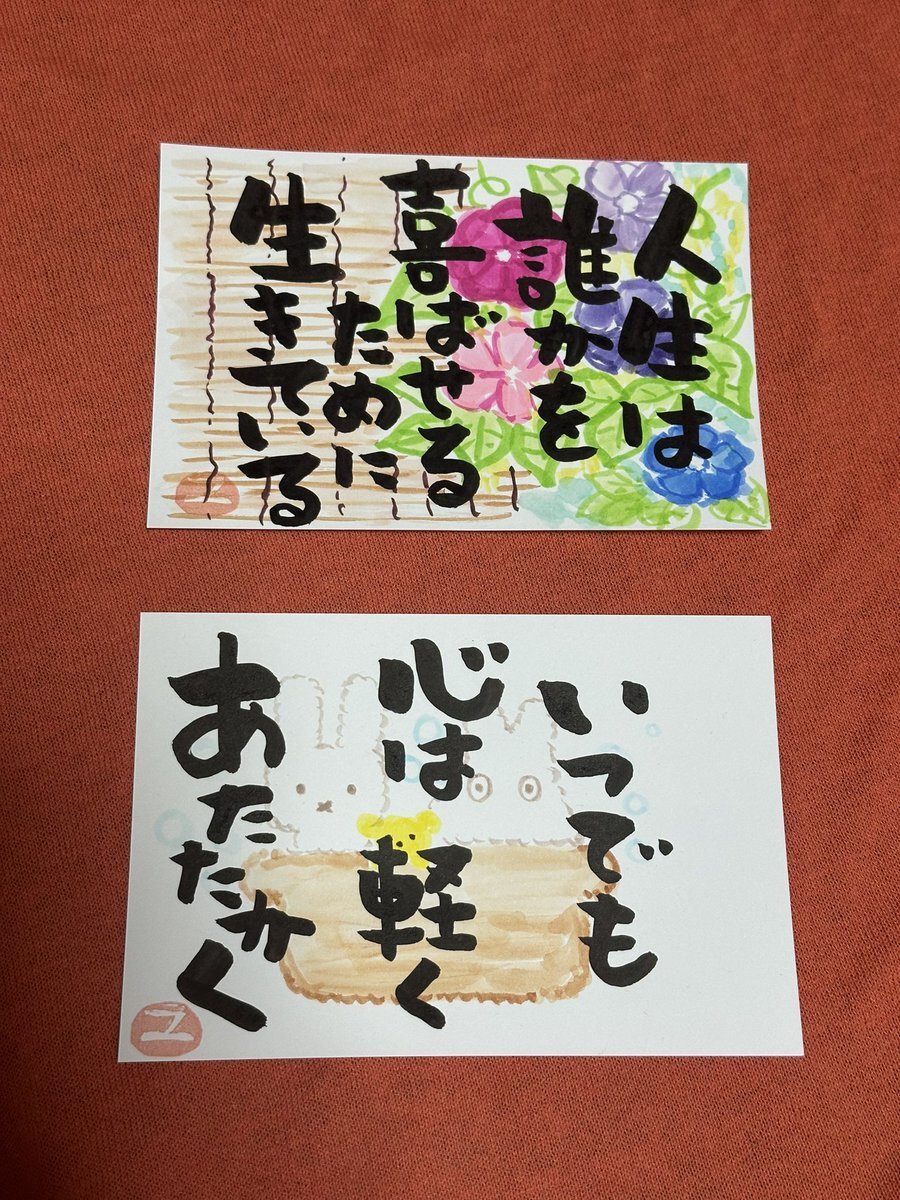 人生は
誰かを
喜ばせる
ために
生きている
ユ
いつでも
心は軽く
あたたかく
ユ